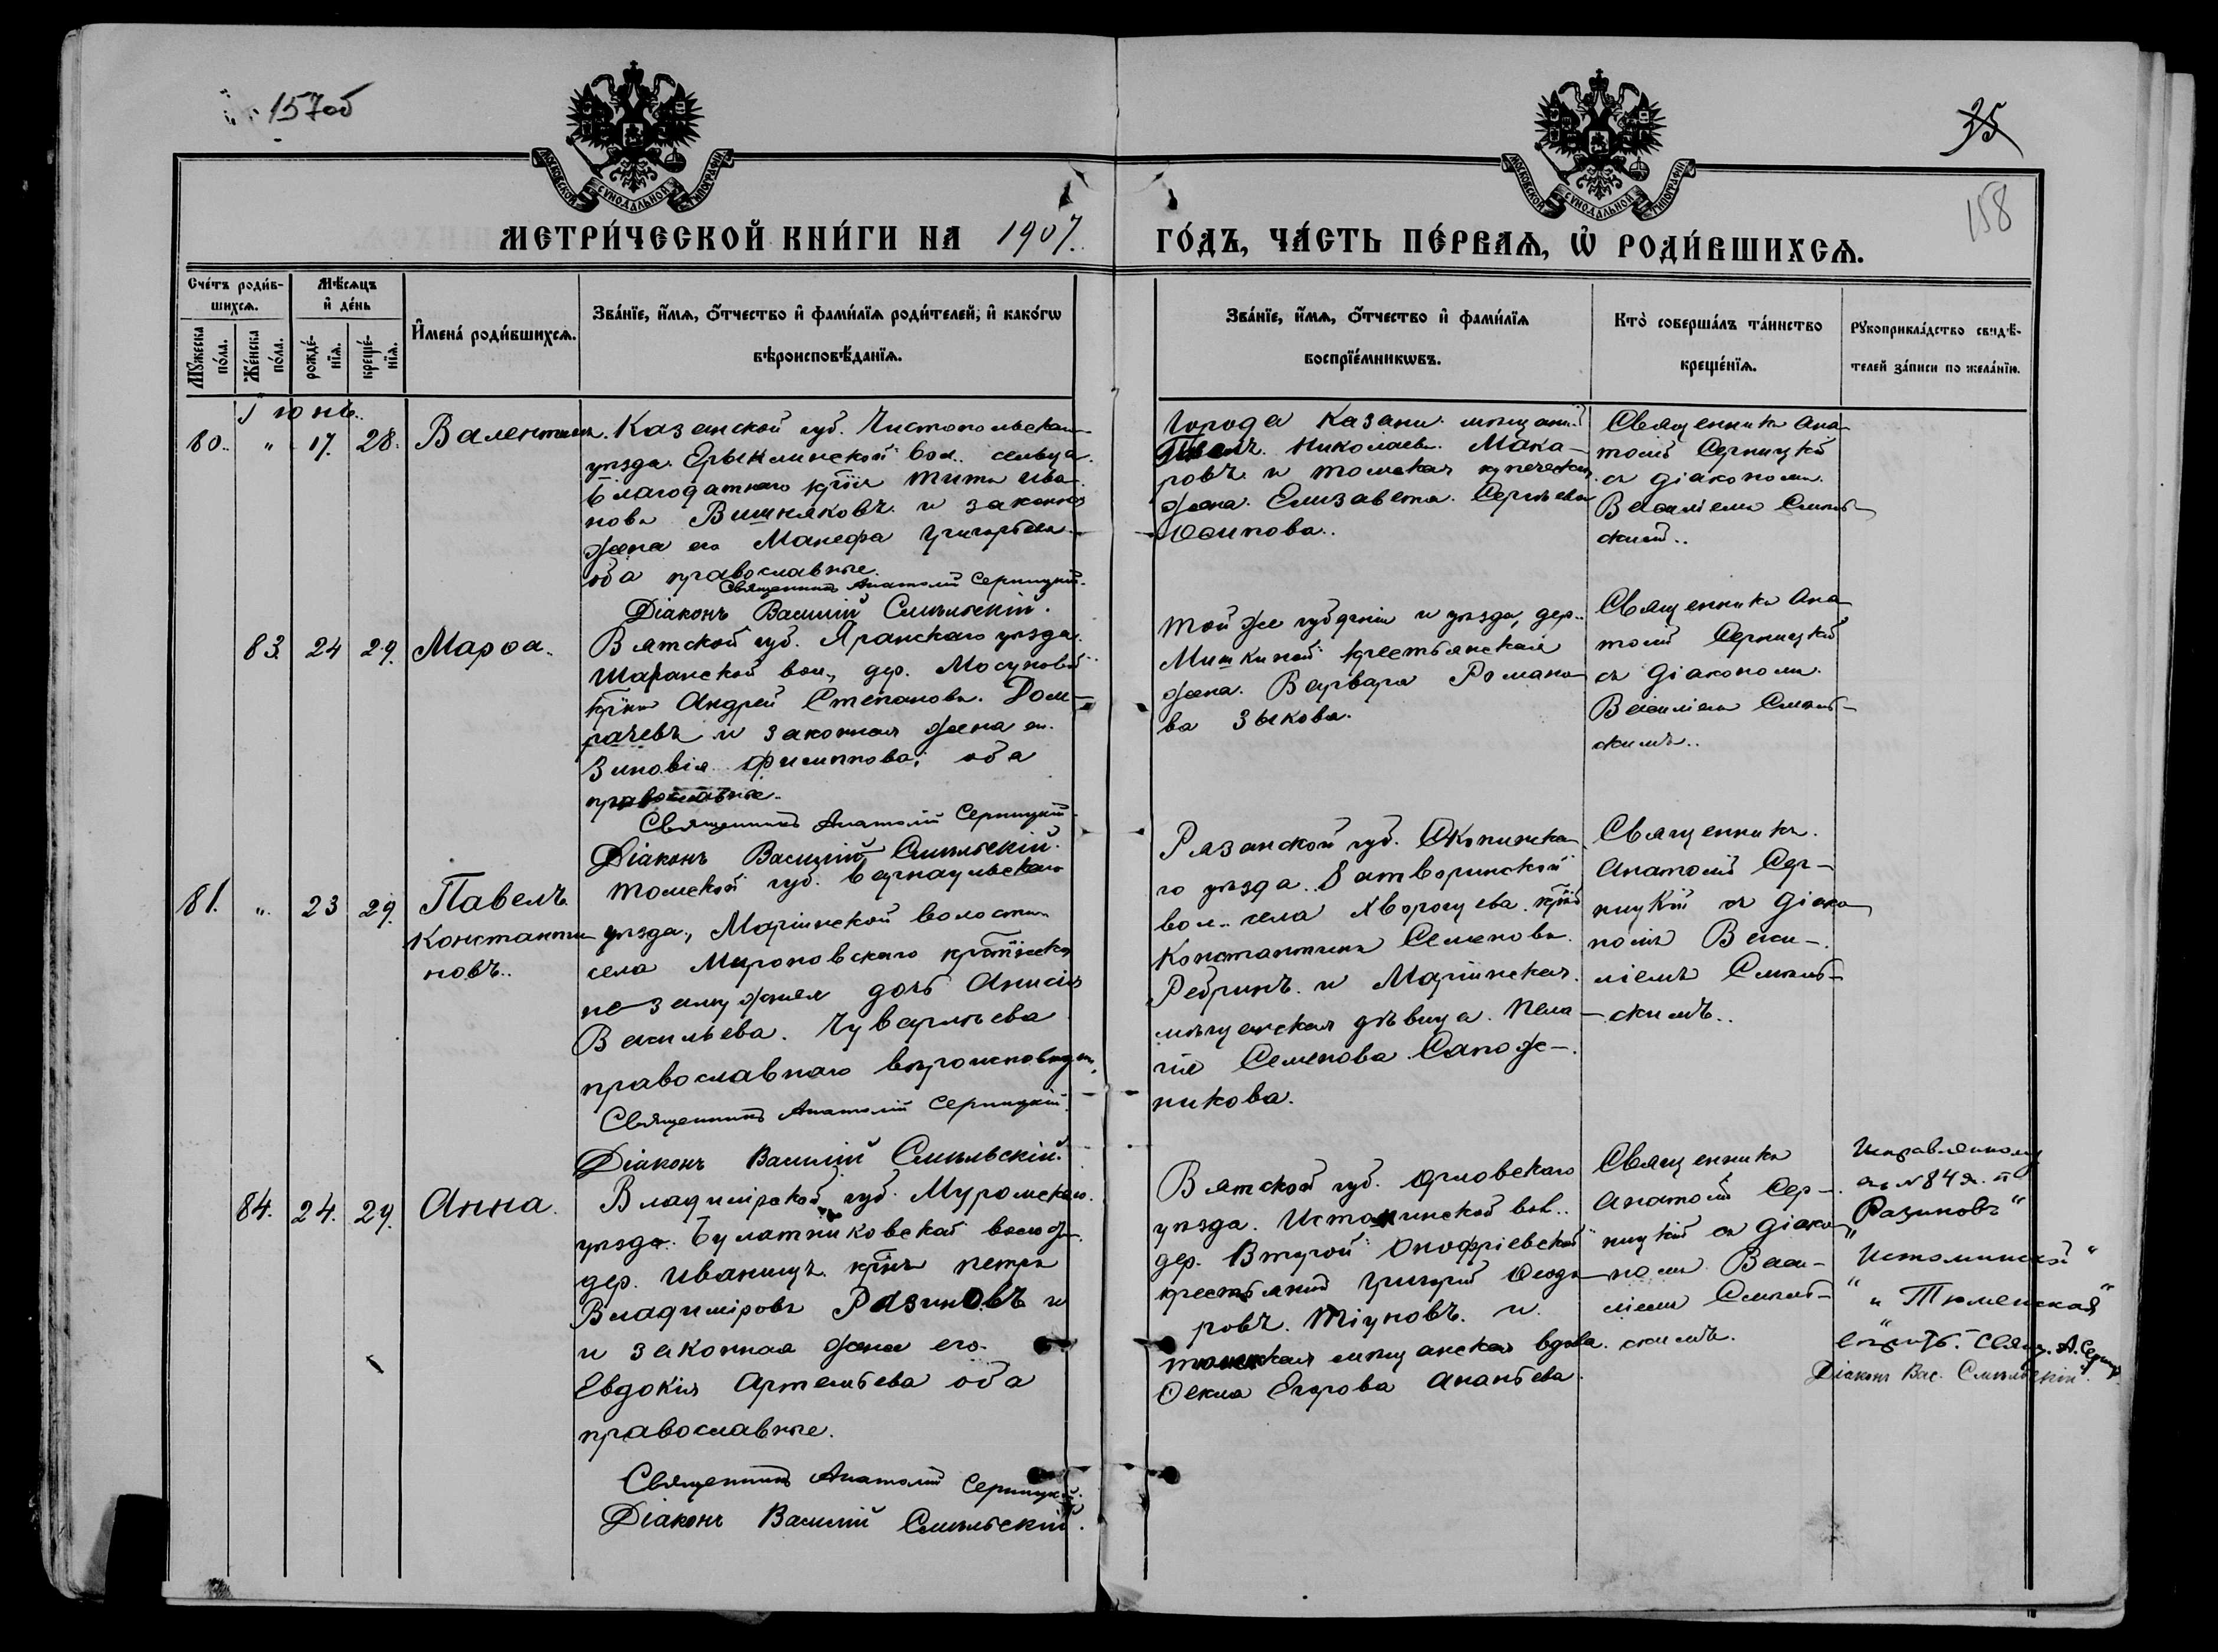 157об
35
158
МОСКОВСКОЙ СѴНОДАЛЬНОЙ ТИПОГРАФІИ
МОСКОВСКОЙ СѴНОДАЛЬНОЙ ТИПОГРАФІИ
МЕТРИ́ЧЕСКОЙ КНИ́ГИ НА 1907. ГО́ДЪ, ЧА́СТЬ ПЕ́РВАѦ, Ѡ҆ РОДИ́ВШИХСѦ.
Сче́тъ роди́в-
шихсѧ.
Мꙋжеска по́ла.
Же́нска по́ла.
Мѣ́сѧцъ
и҆ де́нь
рожде́-
нїѧ.
креще́-
нїѧ.
И҆мена̀ роди́вшихсѧ.
Зва́нїе, и҆́мѧ, ѻ҆́тчество и҆ фамилїѧ роди́телей, и҆ како́гѡ
вѣроисповѣ́данїѧ.
Зва́нїе, и҆́мѧ, ѻ҆́тчество и҆ фамилїѧ
воспрїе́мникѡвъ.
Кто̀ соверша́лъ та́инство
креще́нїѧ.
Рꙋкоприкла́дство свидѣ́-
телей за́писи по жела́нїю.
Іюнь.
80. „ 17. 28. Валентинъ.
Казанской губ. Чистопольскаго
уѣзда. Ерыклинской вол. сельца
Благодатнаго кр̅н̅ Титъ Ива-
новъ Вишняковъ и законная
жена его Манефа Григорьева
оба православные.
Священникъ Анатолій Серницкій.
Діаконъ Василій Смѣльскій.
Города Казани мѣщанин
Николаевъ Мака-
ровъ и томская купеческая
жена Елизавета Сергѣева
Осипова.
Священникъ Ана-
толій Серницкій
съ діакономъ
Василіемъ Смѣль-
скимъ.
83. 24 29. Марѳа.
Вятской губ. Яранскаго уѣзда.
Шаранской вол., дер. Мосуновой
Андрей Степановъ. Дом-
рачевъ и законная жена его
Зиновія Филиппова, оба
православные.
Священникъ Анатолій Серницкій
Діаконъ Василій Смѣльскій.
Той же губерніи и уѣзда, дер.
Мишкиной крестьянская
жена. Варвара Романо-
ва Зыкова.
Священникъ Ана-
толій Серницкій
съ діакономъ
Василіемъ Смѣль-
скимъ.
81. „ 23 29. Павелъ
Константи-
новъ.
Томской губ. Барнаульскаго
уѣзда, Маріинской волости
села Мироновскаго
незамужняя дочь Анисія
Васильева. Чуварлѣева
православнаго вѣроисповѣдан.
Священникъ Анатолій Серницкій
Діаконъ Василій Смѣльскій.
Рязанской губ. Скопинска-
го уѣзда. Затворинской
вол. села Хворощева
Константинъ Семеновъ
Ребринъ и Маріинская
мѣщанская дѣвица. Пела-
гія Семенова Сапож-
никова.
Священникъ
Анатолій Сер-
ницкій съ діако-
номъ Васи-
ліемъ Смѣль-
скимъ.
84. 24. 29. Анна.
Владимірской губ. Муромскаго
уѣзда. Булатниковской волости
дер. Иваницъ. Петръ
Владиміровъ Разиновъ и
и законная жена его
Евдокія Артемьева оба
православные.
Священникъ Анатолій Серницкій
Діаконъ Василій Смѣльскій.
Вятской губ. Орловскаго
уѣзда. Истоминской вол.
дер. Второй Онофріевской
крестьянинъ Григорій Ѳеодо-
ровъ. Тіуновъ. и
мѣщанская вдова.
Ѳекла Егорова Ананьева.
Священникъ
Анатолій Сер-
ницкій съ діако-
номъ Васи-
ліемъ Смѣль-
скимъ.
Исправленному
въ № 84 
Разиновъ"
„Истоминской"
„и Тюменская"
вѣрить. Свящ. А. Серниц.
Діаконъ Вас. Смѣльскій.